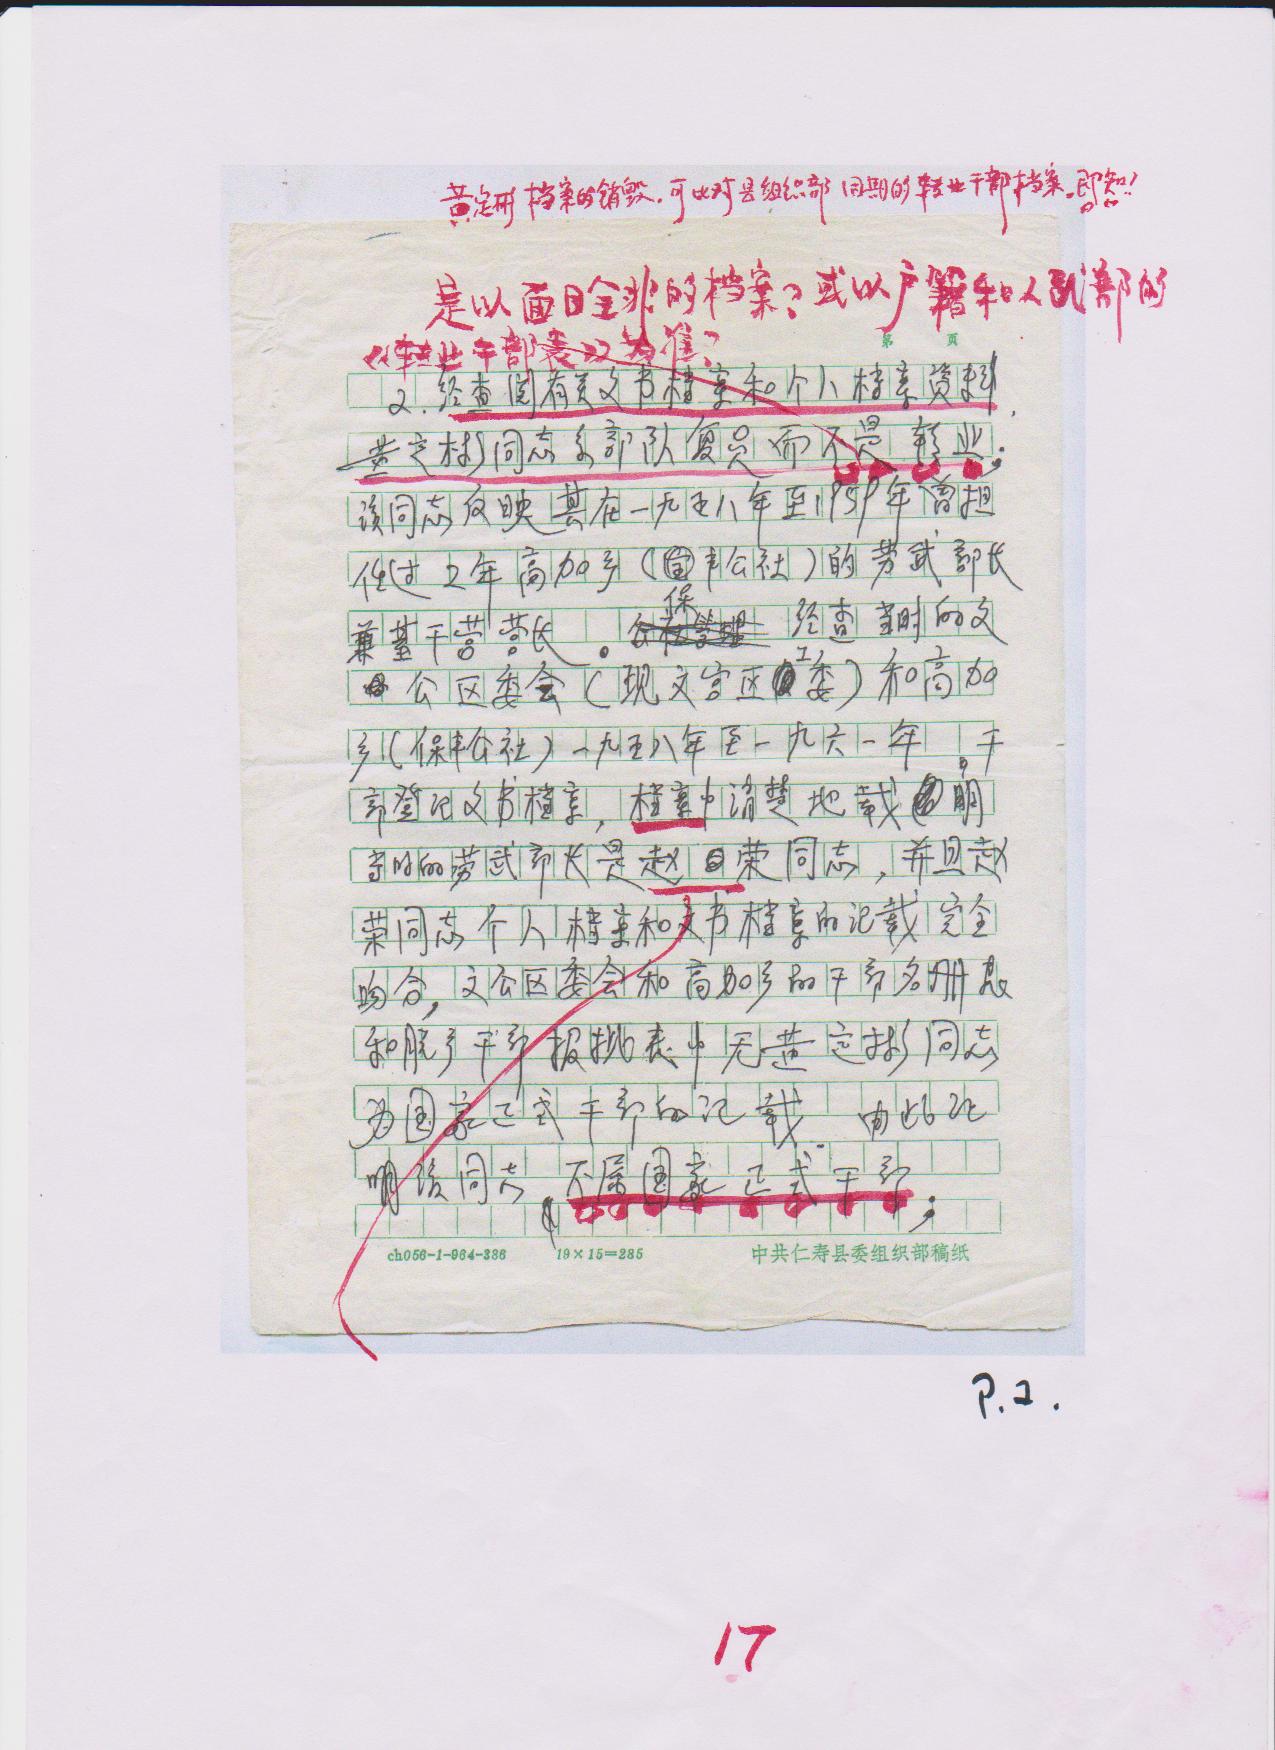 黄定彬档案的销毁，可比对县组织部同期的转业干部档案。即知！
是以面目全非的档案？或以户籍和人武部的
《转业干部表》为准？
第 页
2.经查阅有关文书档案和个人档案资料，
黄定彬同志系部队复员而不是转业；
该同志反映其在一九五八年至1959年曾担
任过2年高加乡（保丰公社）的劳武部长
兼基干营营长。 经查当时的文
公区委会（现文宫区工委）和高加
乡（保丰公社）一九五八年至一九六一年，干
部登记文书档案，档案中清楚地载明
当时的劳武部长是赵荣同志，并且赵
荣同志个人档案和文书档案的记载完全
吻合，文公区委会和高加乡的干部名册表
和脱产干部报批表中无黄定彬同志
为国家正式干部的记载。由此证
明该同志不属国家正式干部；
ch056-1-964-386 19×15=285 中共仁寿县委组织部稿纸
P.2.
17